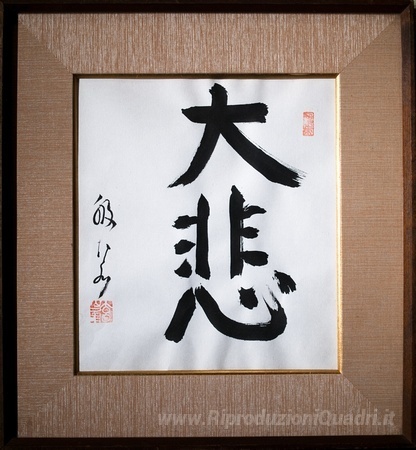 大悲
般若
www.RiproduzioniQuadri.it